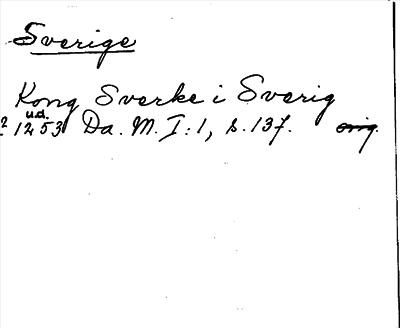 Sverige
Kong Sverke i Sverig
u.d.
? 1253 Da. M. I:1, s. 137. orig.